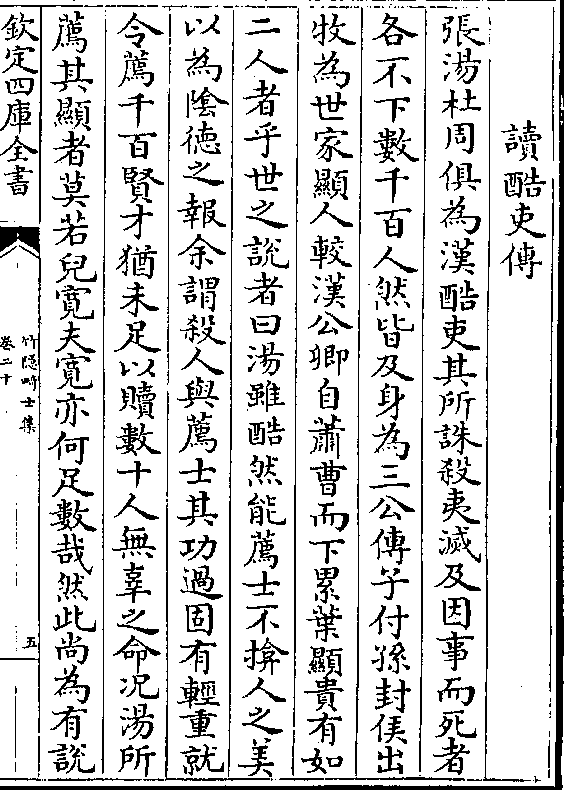 讀酷吏傳
張湯杜周俱為漢酷吏其所誅殺夷滅及因事而死者
各不下數千百人然皆及身為三公傳子付孫封侯出
牧為世家顯人較漢公卿自蕭曹而下累葉顯貴有如
二人者乎世之說者曰湯雖酷然能薦士不揜人之美
以為隂徳之報余謂殺人與薦士其功過固有輕重就
令薦千百賢才猶未足以贖數十人無辜之命况湯所
薦其顯者莫若兒寛夫寛亦何足數哉然此尚為有說
欽定四庫全書
竹隠畸士集
卷二十
五